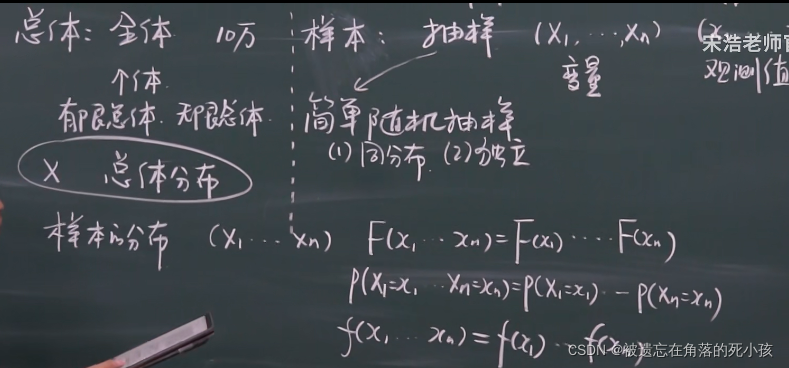 总体: 全体 10万
个体
有限总体. 无限总体.
X 总体分布
样本: 抽样 (X1, ..., Xn) (x
变量 观测值
宋浩老师官
简单随机抽样
(1) 同分布. (2) 独立
样本的分布 (X1 ... Xn) F(x1 ... xn) = F(x1) .... F(xn)
P(X1=x1 ... Xn=xn) = P(X1=x1) -- P(Xn=xn)
f(x1 ... xn) = f(x1) ... f(x
CSDN @被遗忘在角落的死小孩